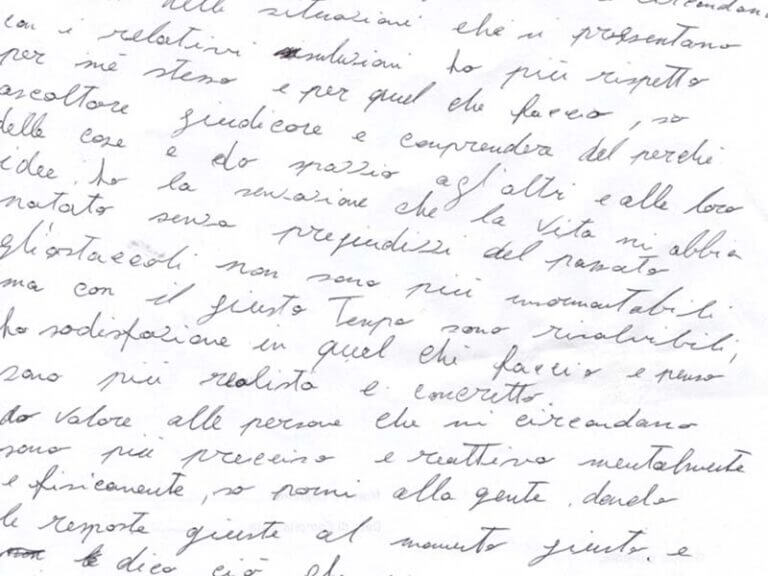 delle situazioni che si prosentano
con i relativi soluzioni ho più rispetto
per mè stesso e per quel che faccio, so
ascoltare giudicare e comprendere del perchè
delle cose e do spazzio agl'altri e alle loro
idee. ho la sensazione che la vita mi abbia
natato senza pregiudizzi del passato
gl'ostaccoli non sono più insormontabili
ma con il giusto Tempo sono risolvibili,
ho sodisfazione in quel chè faccio e penso
sono più realista e concretto.
do valore alle persone che mi circondano
sono più precciso e reattivo mentalmente
e fisicamente, so pormi alla gente. dando
le resposte giuste al momento giusto. e
dico ciò che